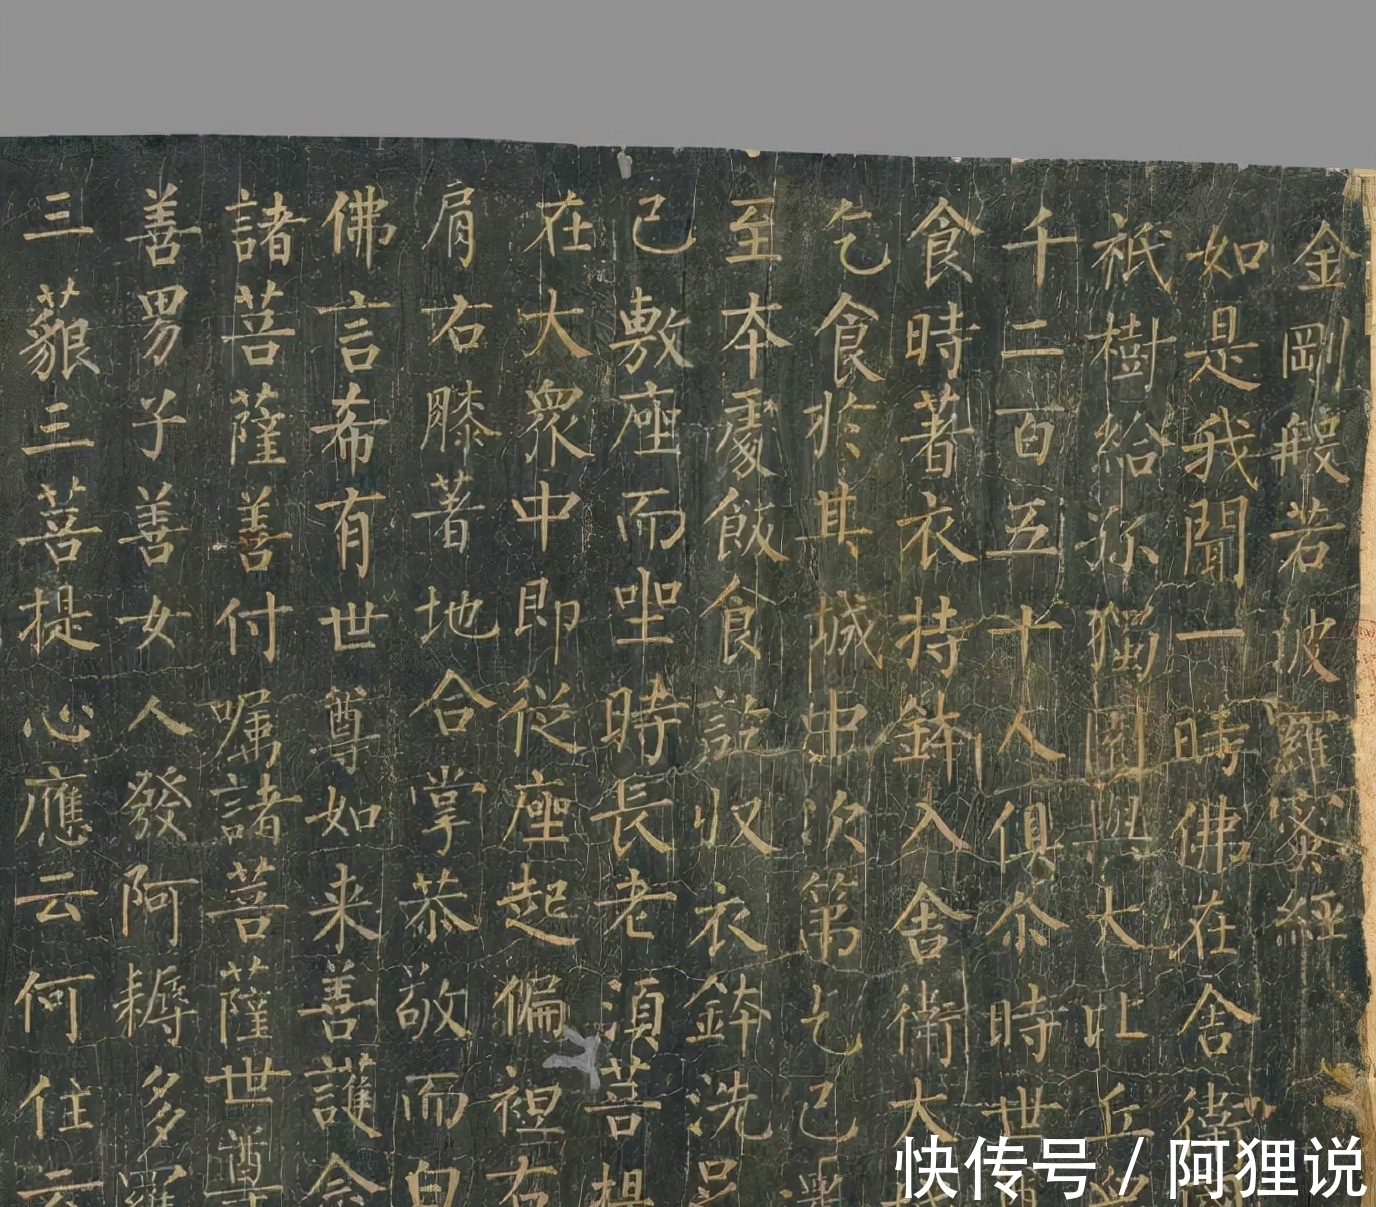 金剛般若波羅蜜經
如是我聞一時佛在舍衛國
祇樹給孤獨園與大比丘
千二百五十人俱尒時世尊
食時著衣持鉢入舍衛大城
乞食於其城中次第乞已還
至本處飯食訖収衣鉢洗足
已敷座而坐時長老須菩提
在大衆中即從座起偏袒右
肩右膝著地合掌恭敬而白
佛言希有世尊如来善護念
諸菩薩善付嘱諸菩薩世尊
善男子善女人發阿耨多羅
三藐三菩提心應云何住云
快传号 / 阿狸说